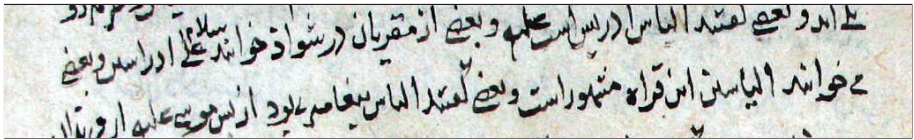 اند و بعضے گفتند الیاس ادریس است علیه و بعضے از مقریان در شواذ خوانند سلام علی ادراسین و بعضے
مے خوانند الیاسین این قراه مشهور است و بعضے گفتند الیاس پیغامبرے بود از پس موسے علیه از فرزندان